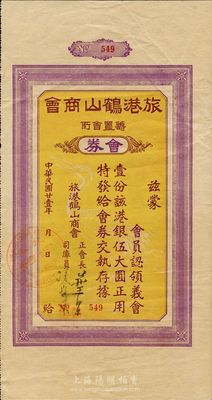 № 549
旅港鶴山商會
籌置會所
會券
茲蒙
會員認領義會
壹份該港銀伍大圓正用
特發給會券交執存據
旅港鶴山商會
正會長
司庫員
中華民國廿壹年 月 日
給 № 549
上海陽明拍賣